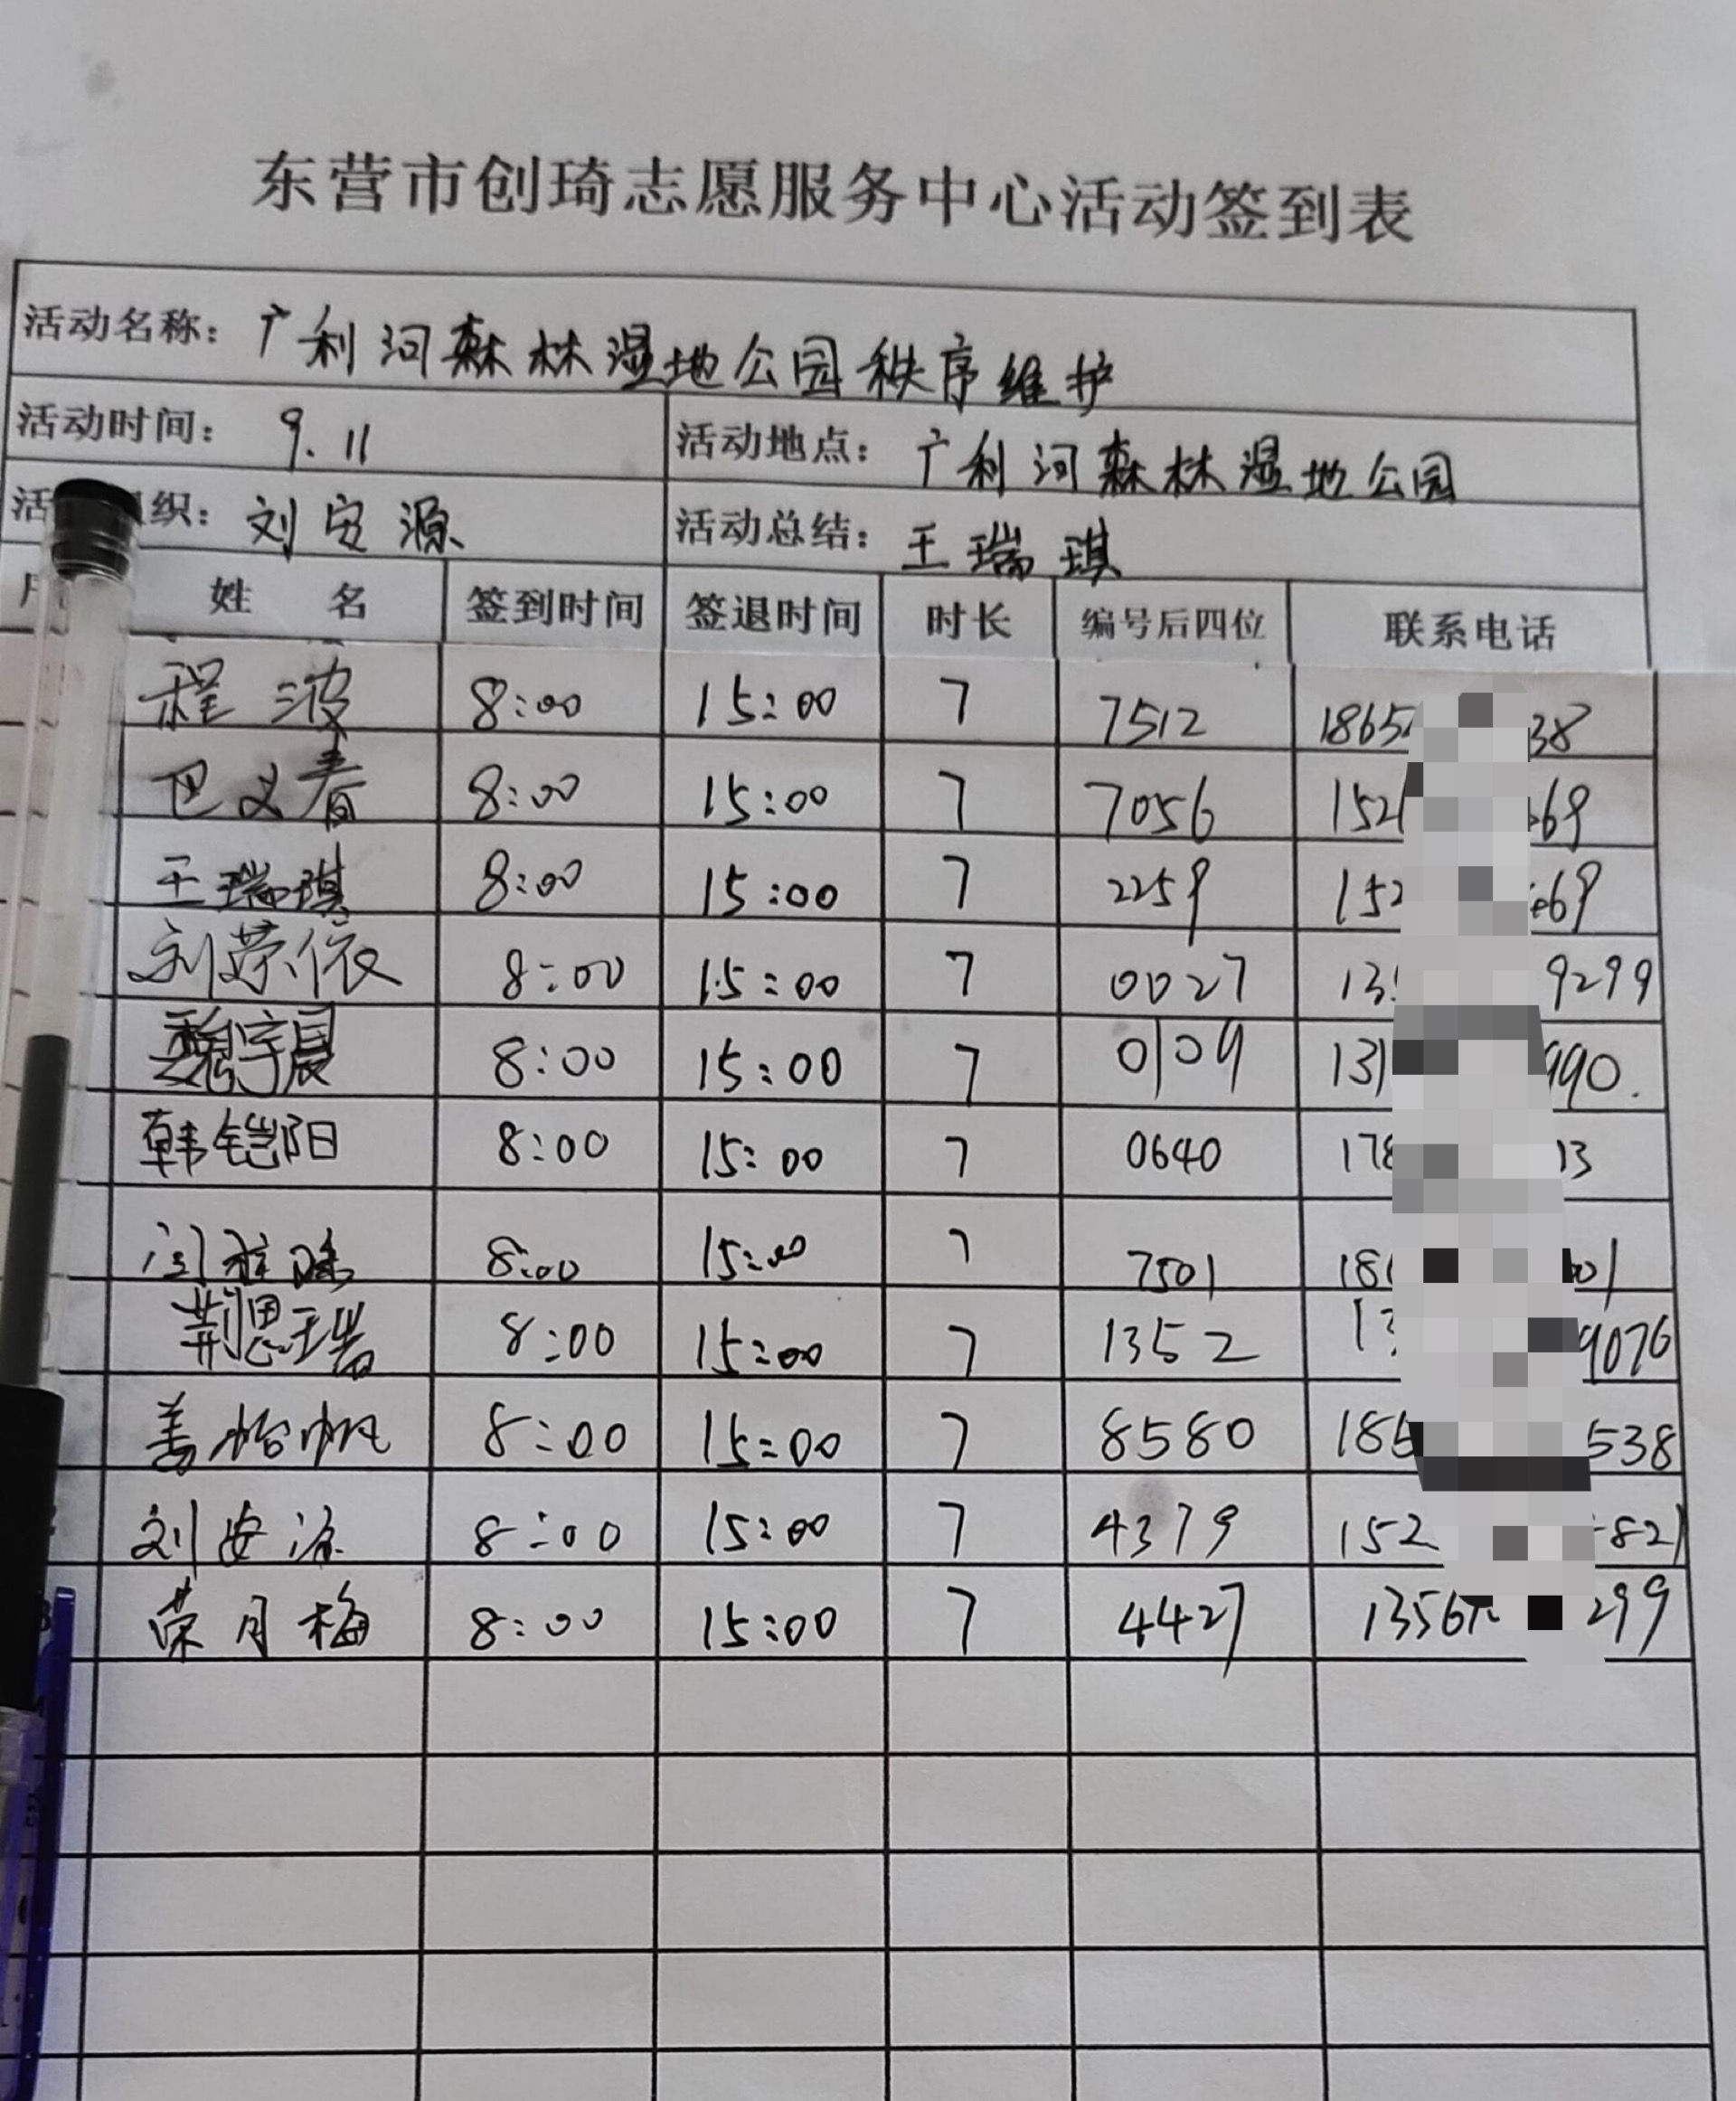 东营市创琦志愿服务中心活动签到表
活动名称: 广利河森林湿地公园秩序维护
活动时间: 9.11 活动地点: 广利河森林湿地公园
活 织: 刘安源 活动总结: 王瑞琪
姓 名 签到时间 签退时间 时长 编号后四位 联系电话
程波 8:00 15:00 7 7512 1865 38
巴义春 8:00 15:00 7 7056 152 69
王瑞琪 8:00 15:00 7 2259 152 69
刘荣依 8:00 15:00 7 0027 13 9299
魏宇晨 8:00 15:00 7 0109 131 990.
韩铠阳 8:00 15:00 7 0640 178 13
8:00 15:00 7 7501 186 01
荆思瑞 8:00 15:00 7 1352 13 9076
姜怡帆 8:00 15:00 7 8580 186 538
刘安源 8:00 15:00 7 4379 152 821
荣月梅 8:00 15:00 7 4427 1356 299